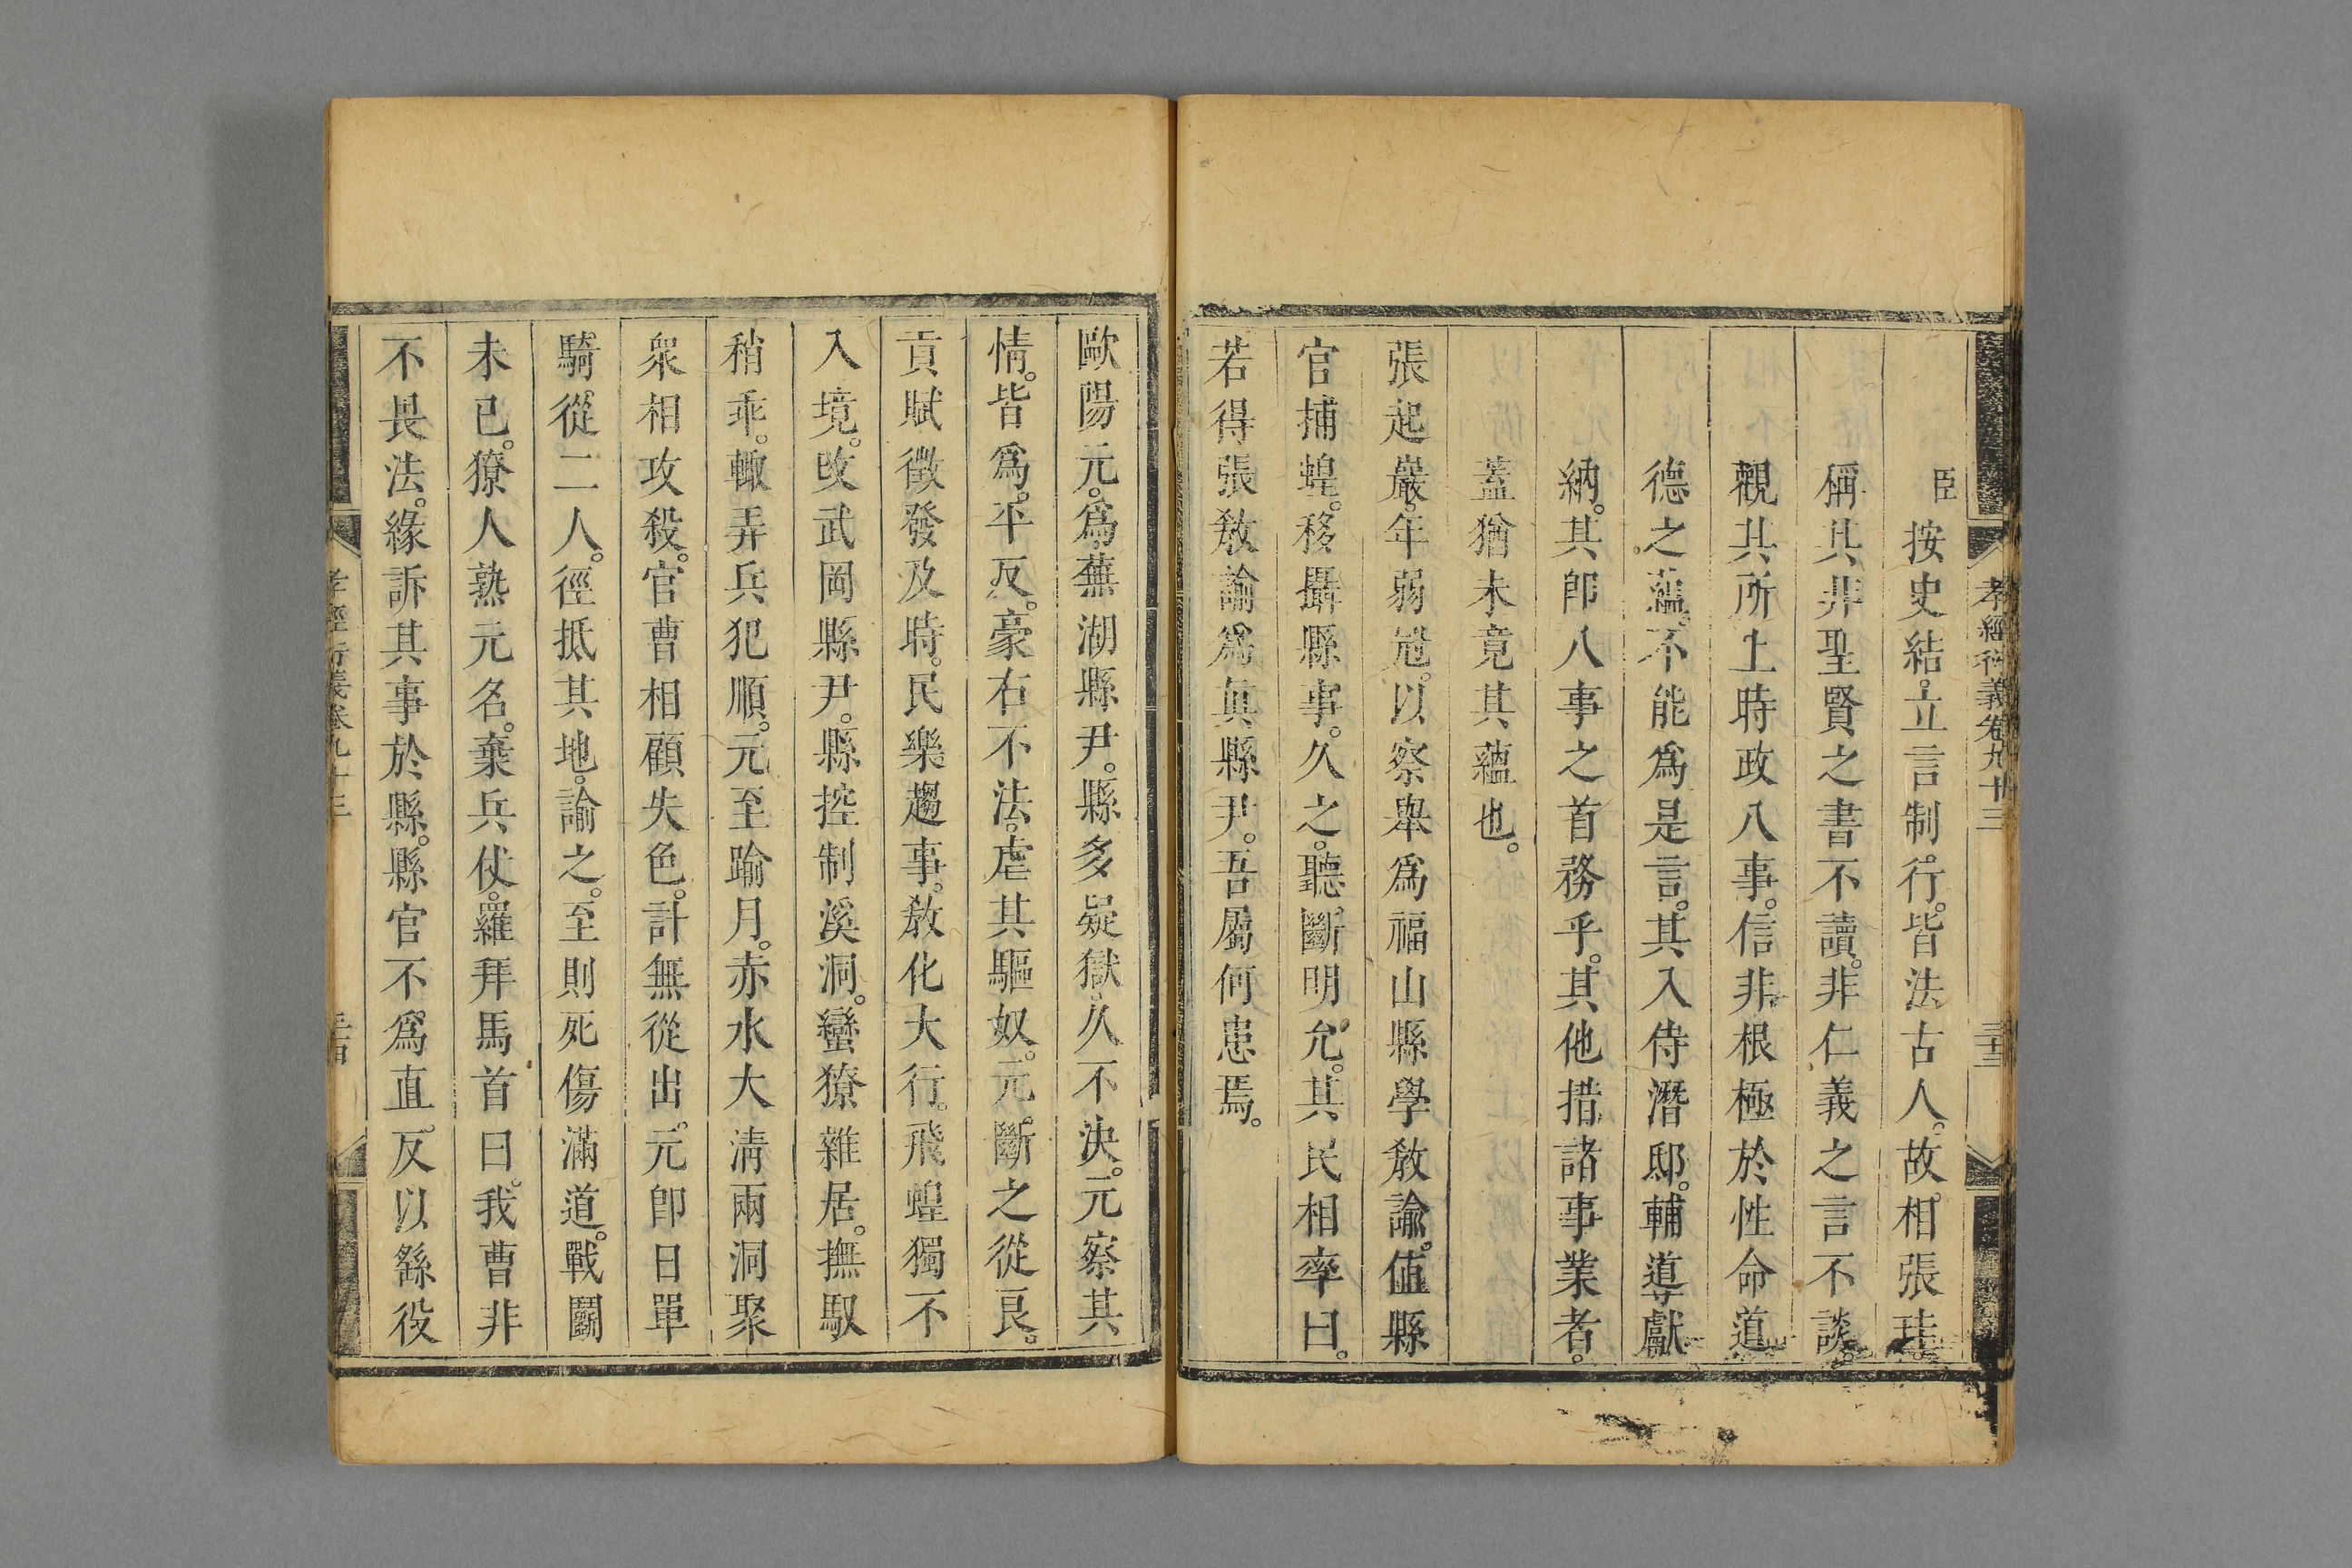 孝經衍義卷九十三 三十三
臣按史結立言制行。皆法古人。故相張珪。
稱其非聖賢之書不讀。非仁義之言不談。
觀其所上時政八事。信非根極於性命道
德之蘊。不能爲是言。其入侍潛邸。輔導獻
納。其卽八事之首務乎。其他措諸事業者。
蓋猶未竟其蘊也。
張起巖。年弱冠。以察舉爲福山縣學敎諭。値縣
官捕蝗。移攝縣事。久之。聽斷明允。其民相率曰。
若得張敎諭爲眞縣尹。吾屬何患焉。
歐陽元。爲蕪湖縣尹。縣多疑獄。久不決。元察其
情。皆爲平反。豪右不法。虐其驅奴。元斷之從良。
貢賦徵發及時。民樂趨事。敎化大行。飛蝗獨不
入境。改武岡縣尹。縣控制溪洞。蠻獠雜居。撫馭
稍乖。輙弄兵犯順。元至踰月。赤水大清兩洞聚
衆相攻殺。官曹相顧失色。計無從出。元卽日單
騎從二人。徑抵其地。諭之。至則死傷滿道。戰鬭
未已。獠人熟元名。棄兵仗。羅拜馬首曰。我曹非
不畏法。緣訴其事於縣。縣官不爲直。反以繇役
孝經衍義卷九十三 三十四